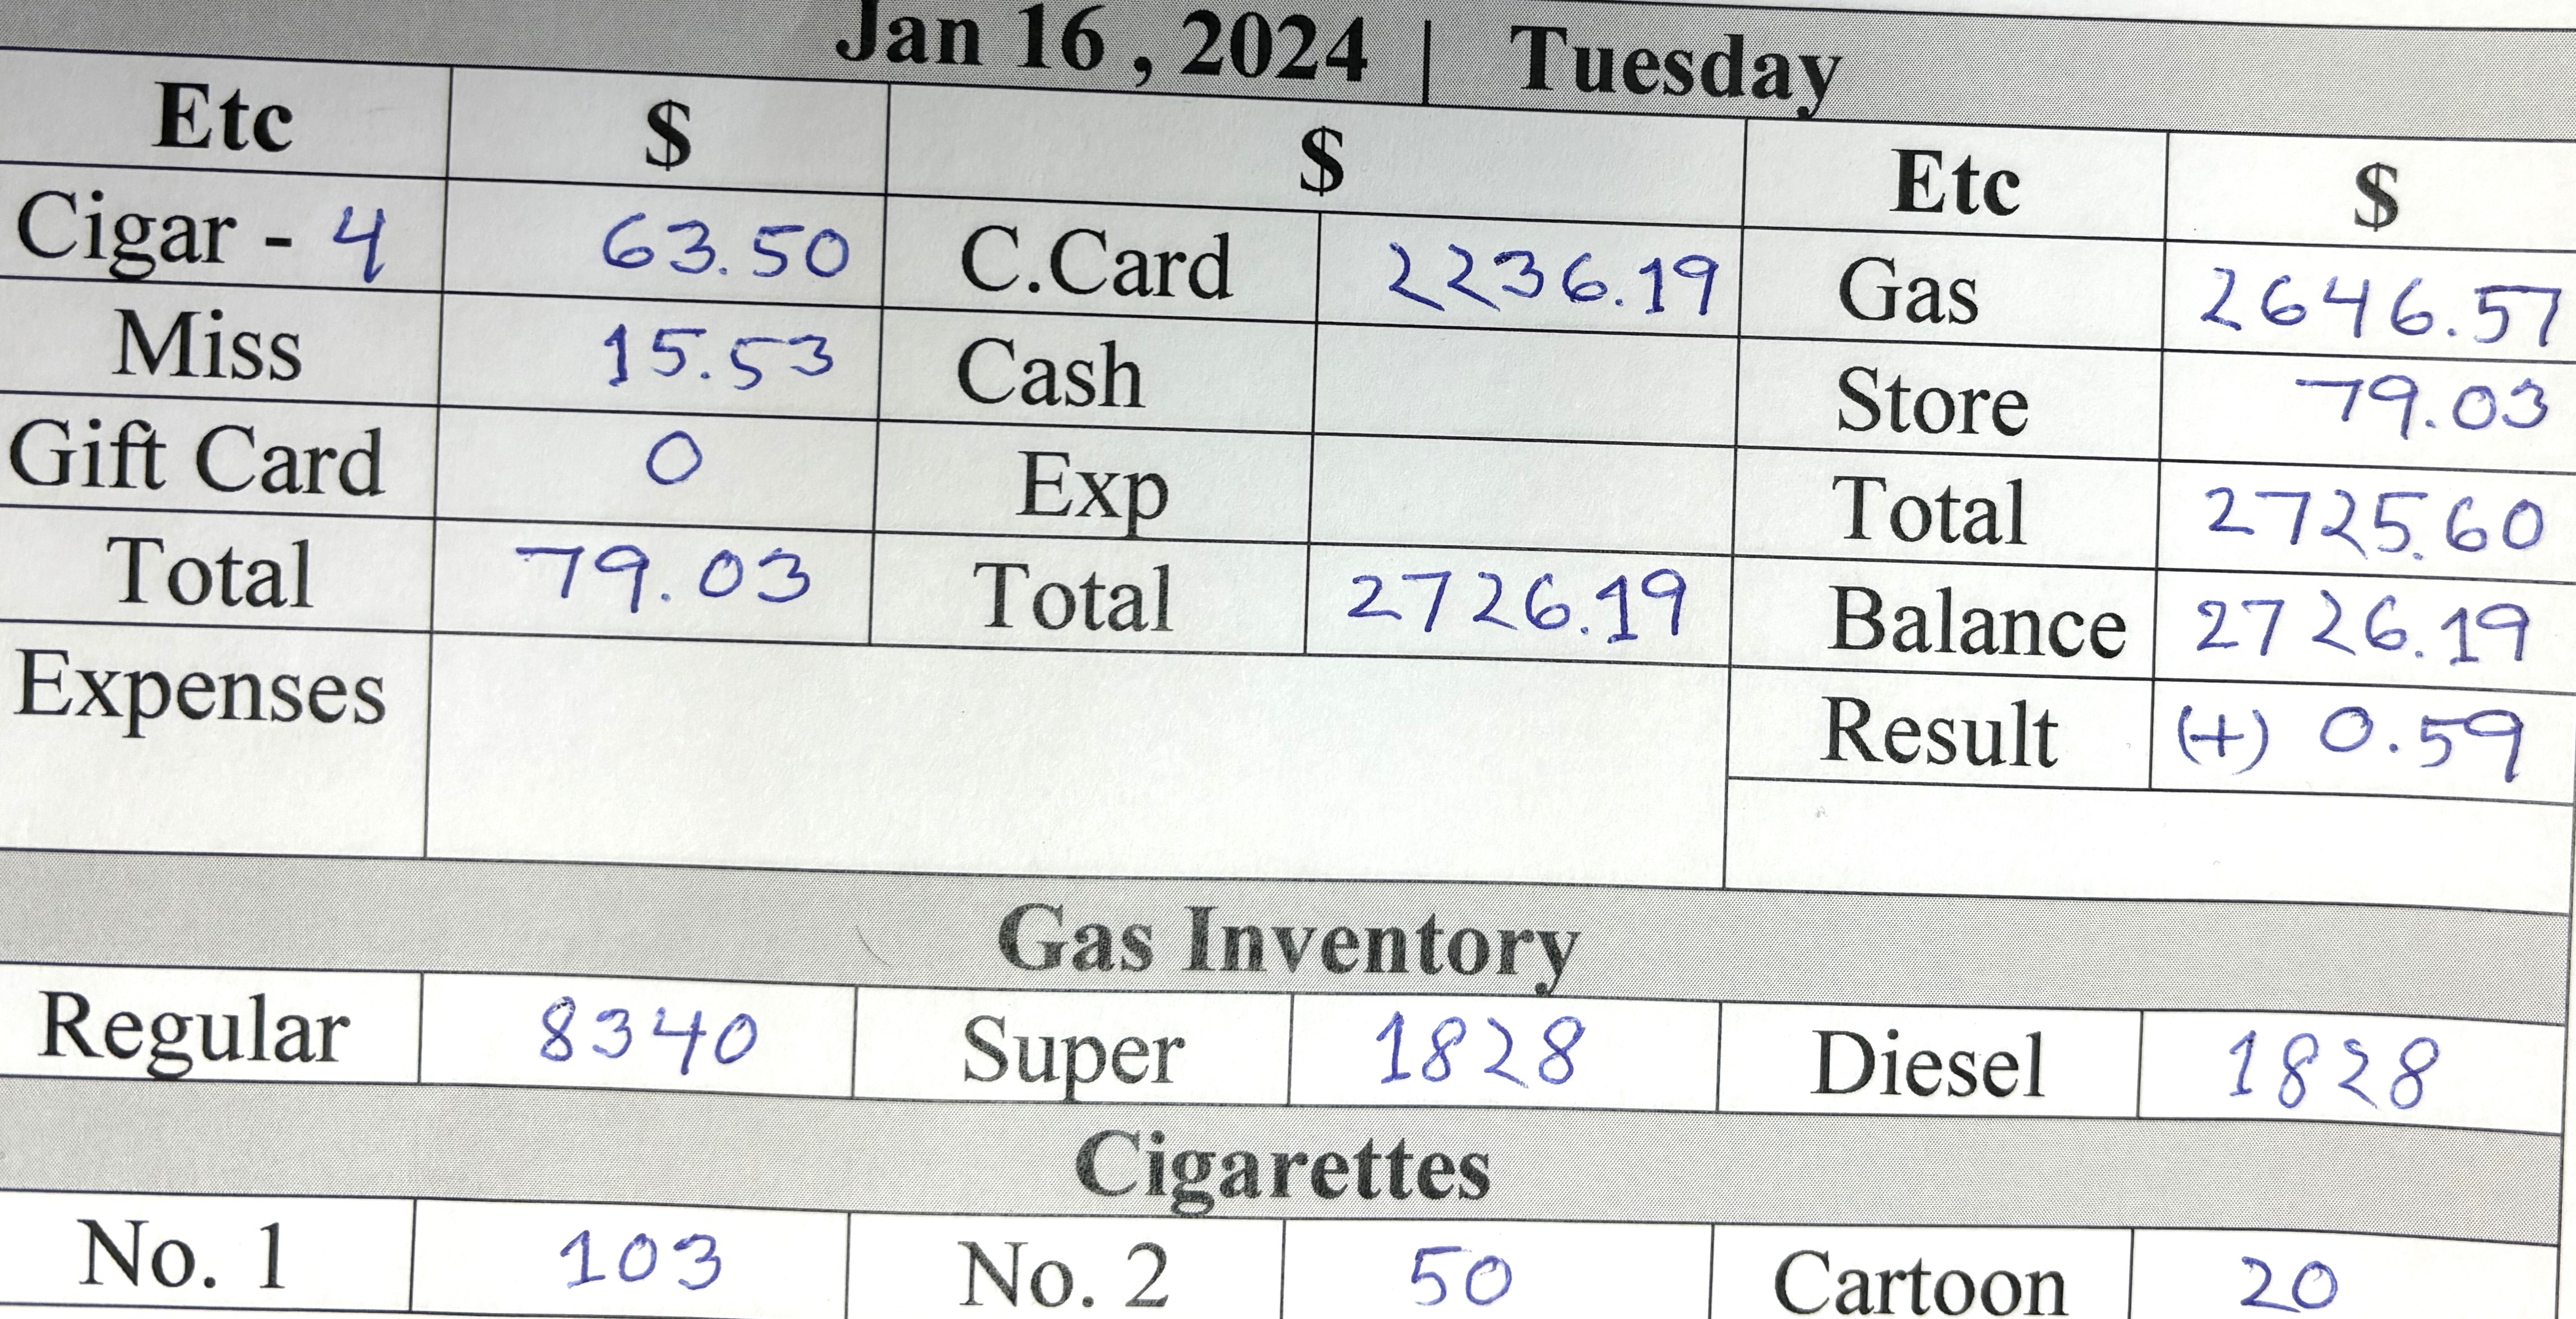 Jan 16 , 2024 | Tuesday
Etc $ $ Etc $
Cigar - 4 63.50 C.Card 2236.19 Gas 2646.57
Miss 15.53 Cash Store 79.03
Gift Card 0 Exp Total 2725.60
Total 79.03 Total 2726.19 Balance 2726.19
Expenses Result (+) 0.59
Gas Inventory
Regular 8340 Super 1828 Diesel 1828
Cigarettes
No. 1 103 No. 2 50 Cartoon 20